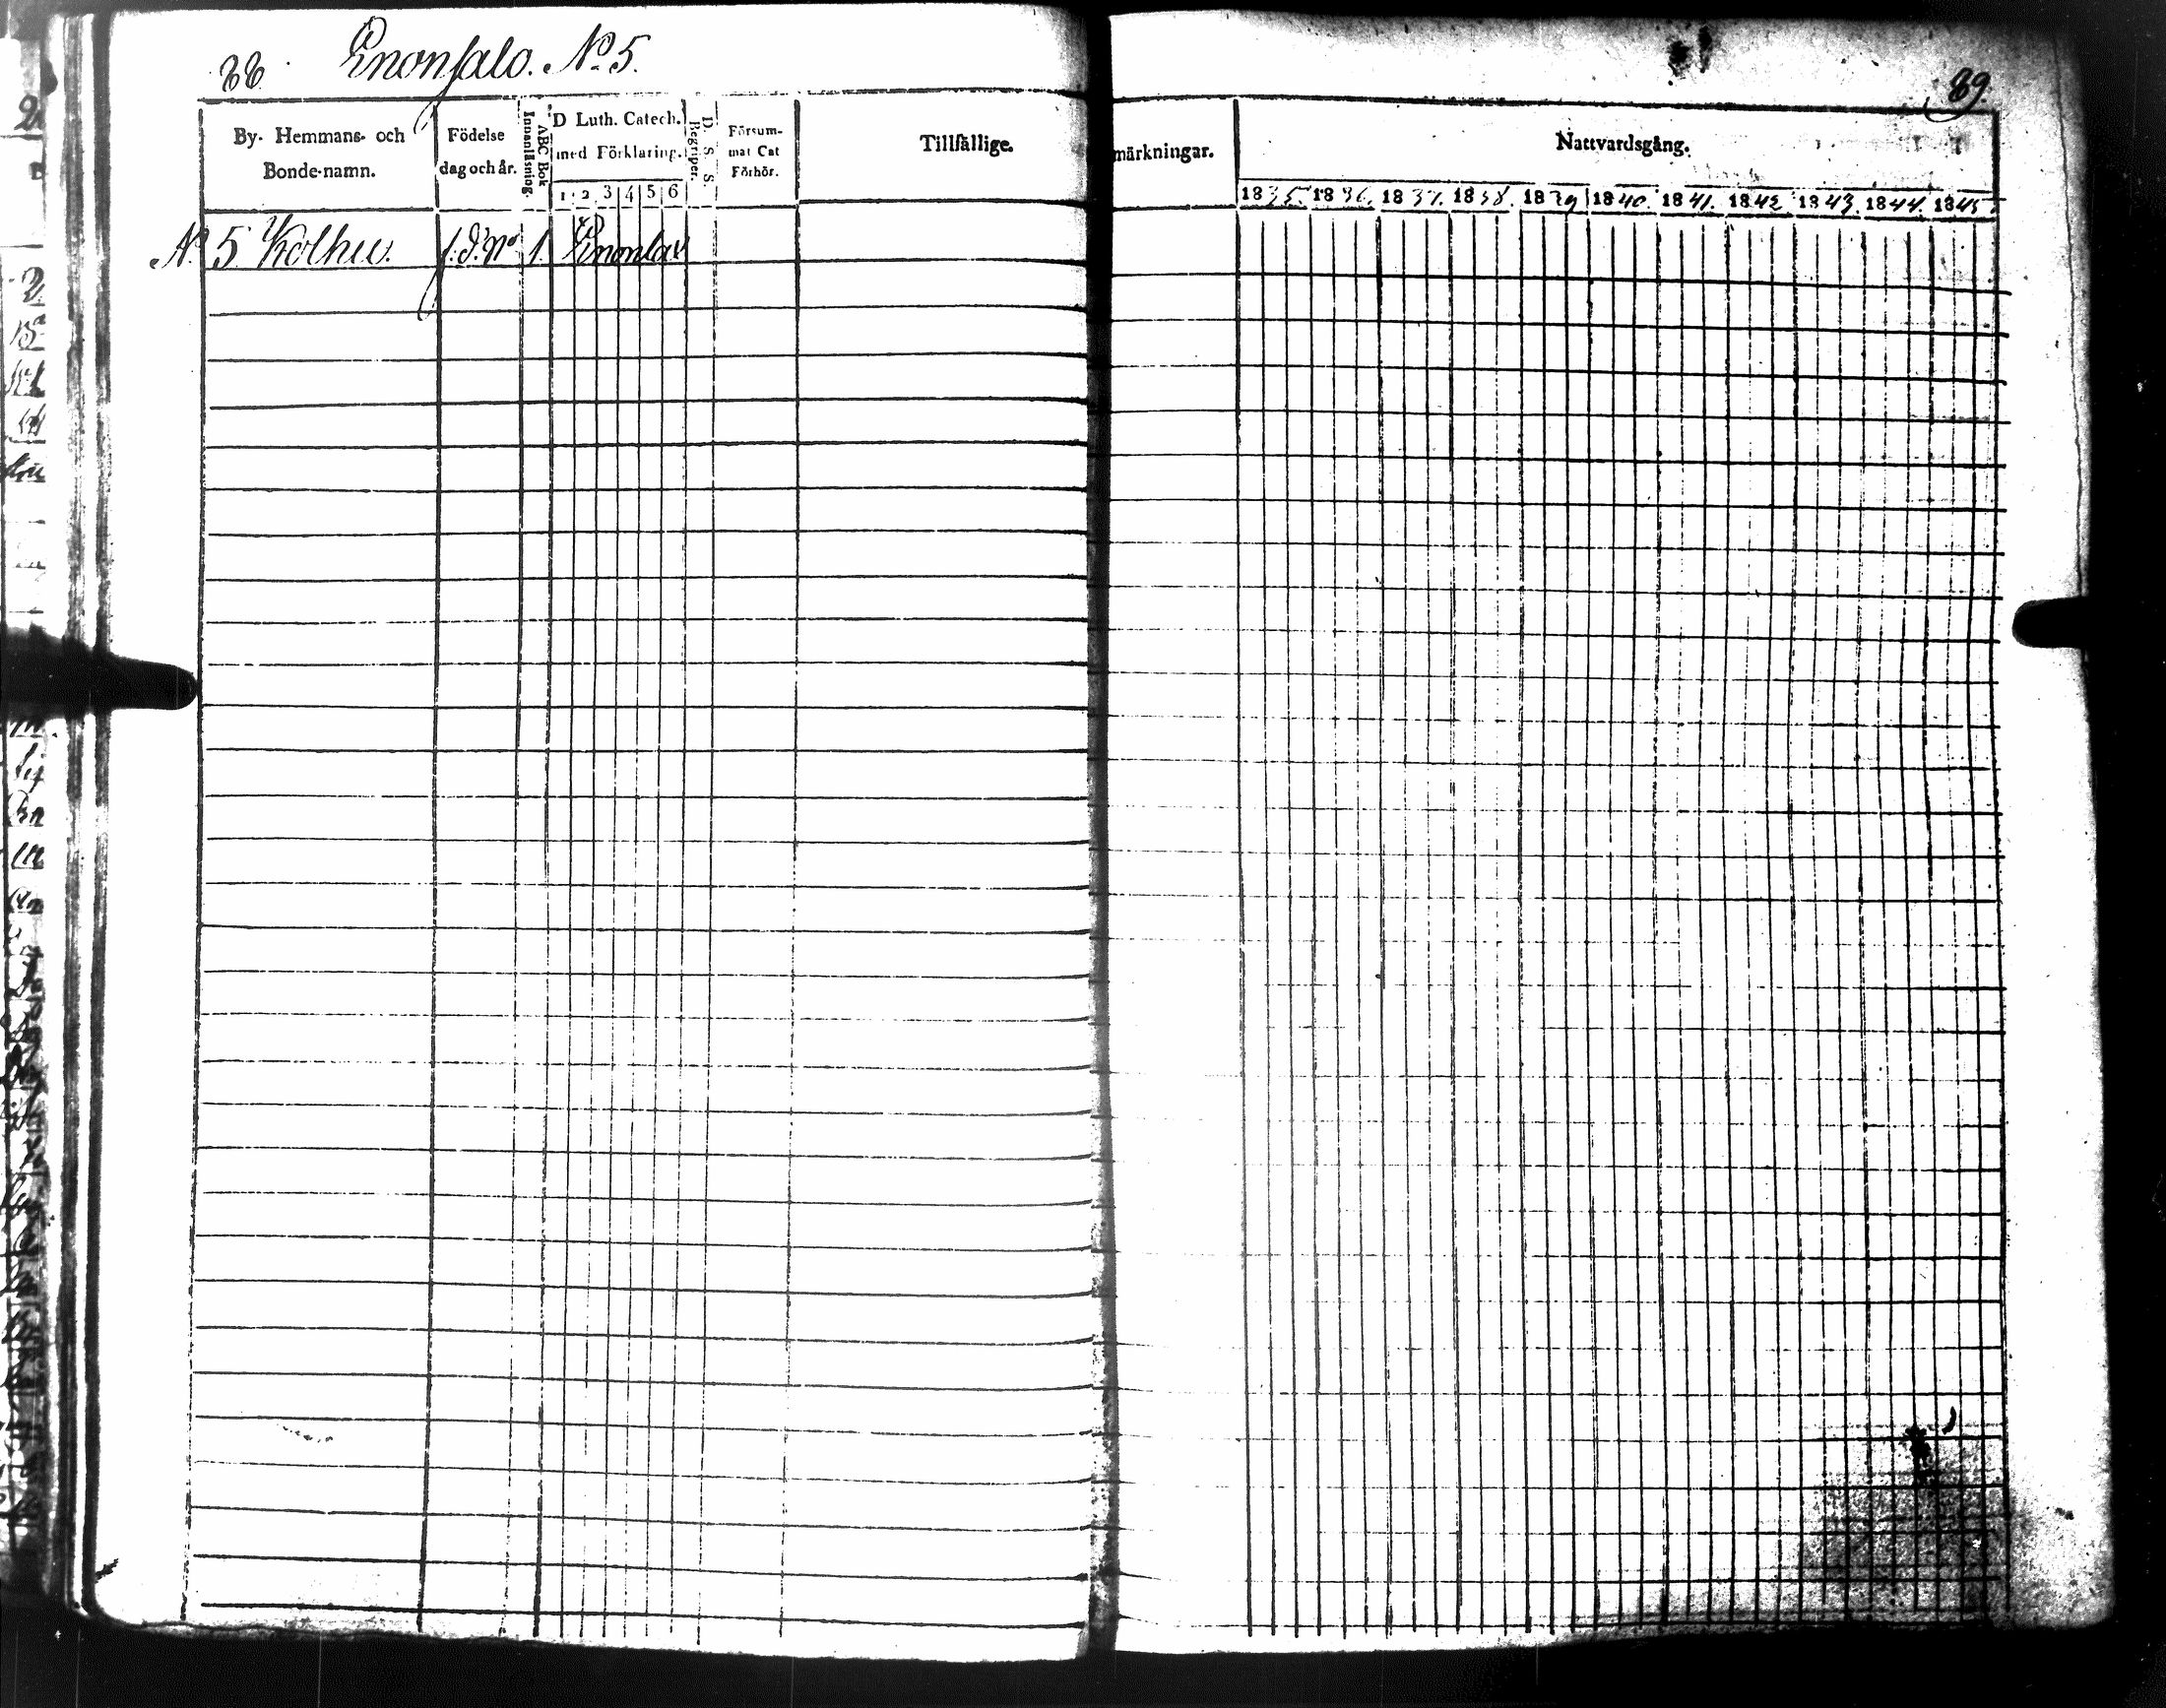 88. Enonsalo. No 5.
89.
By- Hemmans- och Bonde-namn.
Födelse dag och år.
ABC Bok Innanläsning.
D Luth. Catech. med Förklaring.
1 2 3 4 5 6
D. S. S. Begriper.
Försum- mat Cat Förhör.
Tillfällige
märkningar.
Nattvardsgång.
1835. 1836. 1837. 1838. 1839 1840. 1841. 1842 1843. 1844. 1845
No 5 Kolhu. 1. Enonlax